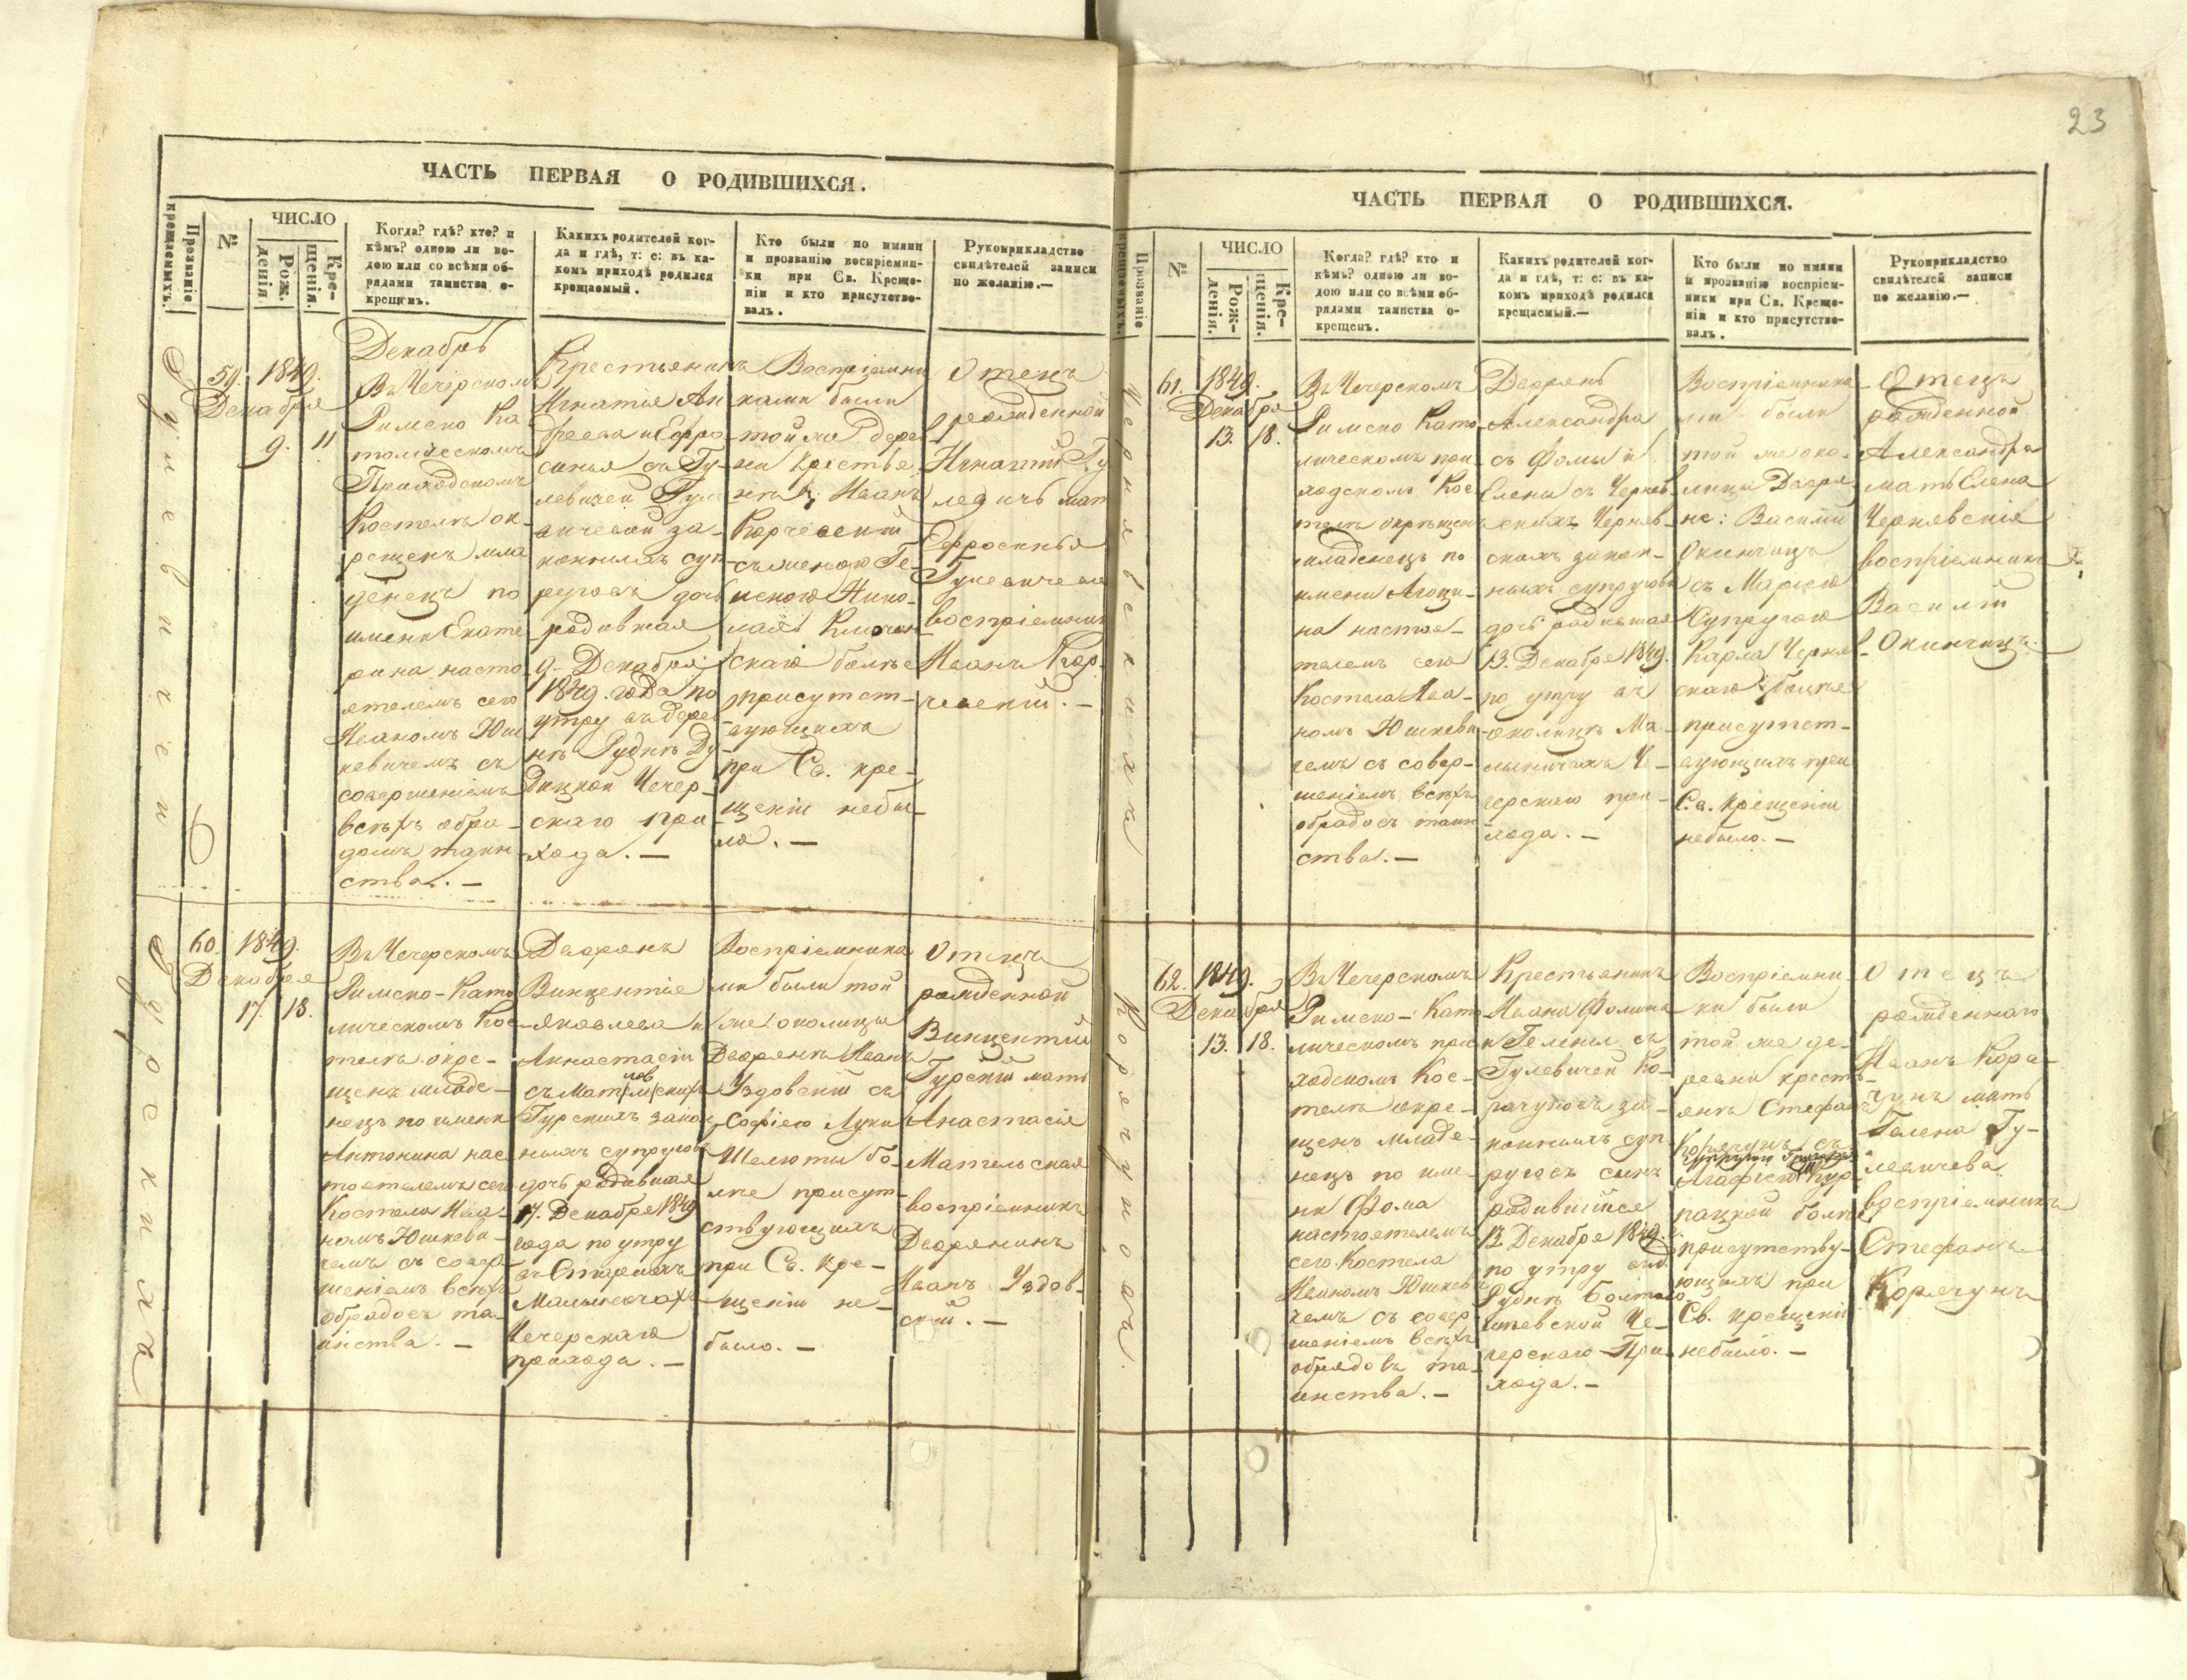 ЧАСТЬ ПЕРВАЯ О РОДИВШИХСЯ.
Прозваніе
крещаемыхъ.
№
ЧИСЛО
Рож-
денія
Кре-
щенія.
Когда? гдѣ? кто? и
кѣмъ? одною ли во-
дою или со всѣми об-
рядами таинства о-
крещенъ.
Какихъ родителей ког-
да и гдѣ, т: е: въ ка-
комъ приходѣ родился
крещаемый.
Кто были по имяни
и прозванію воспріемни-
ки при Св. Креще-
ніи и кто присутство-
валъ.
Рукоприкладство
свидѣтелей записи
по желанію.—
Гулевичей
59.
1849.
Декабря
9. 11
Декабрь
Въ Чечерскомъ
Римско Ка
толическомъ
Приходскомъ
Костелѣ ок-
рещенъ мла
денецъ по
имени Екате
рина насто
ятелемъ сего
Иваномъ Юш
кевичемъ съ
совершеніемъ
всѣхъ обря-
домъ таин
ства. —
Крестьянинъ
Игнатія Ан
дреева и Ефро
синьи съ Гу-
левичей Гуле
вичевой за-
конныхъ суп-
руговъ дочь
родившая
9. Декабря
1849. года по
утру въ дерев
нѣ Рудкѣ Ду
дицкой Чечер-
скаго при-
хода. —
Воспріемни
ками были
той же дерев
ни крестья
не Иванъ
Корчевскій
съ женою Ге-
Нико-
лая
скаго болѣе
присутст-
вующихъ
при Св. кре-
щеніи небы-
ло. —
Отецъ
рожденной
Игнатій Гу
левичъ мать
Ефросинья
Гулевичева
воспріемникъ
Иванъ Кор-
чевскій. —
Гурскихъ
60.
1849.
Декабря
17. 18.
Въ Чечерскомъ
Римско-Като
лическомъ Кос
телѣ окре-
щенъ младе-
нецъ по имени
Антонина нас
тоятелемъ сего
Костела Ива-
номъ Юшкеви-
чемъ съ совер-
шеніемъ всѣхъ
обрядовъ та-
инства. —
Дворянъ
Винцентія
Яковлева и
Аннастасіи
съ
Гурскихъ закон
ныхъ супруговъ
дочь родившая
17. Декабря 1849
года по утру
въ Старыхъ
Малыничахъ
Чечерскаго
прихода. —
Воспріемника
ми были той
же околицы
Дворянѣ Иванъ
Уздовскій съ
Софіею Луки
Шелюты бо-
лѣе присут-
ствующихъ
при Св. Кре-
щеніи не-
было. —
Отецъ
рожденной
Винцентій
Гурскій мать
Анастасія
Мательская
воспріемникъ
Дворянинъ
Иванъ Уздов-
скій. —
23
ЧАСТЬ ПЕРВАЯ О РОДИВШИХСЯ.
Прозваніе
крещаемыхъ.
№
ЧИСЛО
Рож-
денія.
Кре-
щенія.
Когда? гдѣ? кто и
кѣмъ? одною ли во-
дою или со всѣми об-
рядами таинства о-
крещенъ.
Какихъ родителей ког-
да и гдѣ, т: е: въ ка-
комъ приходѣ родился
крещаемый.—
Кто были по имяни
и прозванію воспріем-
ники при Св. Креще-
ніи и кто присутство-
валъ.
Рукоприкладство
свидѣтелей записи
по желанію.—
Чернявскихъ
61.
1849.
Декабря
13. 18.
Въ Чечерскомъ
Римско Като
лическомъ при
ходскомъ Кос
телѣ окрещенъ
младенецъ по
имени
на настоя-
телемъ сего
Костела Ива-
номъ Юшкеви
чемъ съ совер-
шеніемъ всѣхъ
обрадовъ таин
ства. —
Дворянъ
Александра
съ Фомы и
Елены съ Черняв
скихъ Черняв-
скихъ закон-
ныхъ супруговъ
дочь родившая
13. Декабря 1849.
по утру въ
околицѣ Ма-
лыничахъ Че-
черскаго при-
хода. —
Воспріемника
ми были
той же око-
лицы Дворя-
не: Василій
Окинчицъ
съ Маріею
Супругою
Карла Черняв
скаго болѣе
присутст-
вующихъ при
Св. Крещеніи
небыло. —
Отецъ
рожденной
Александра
мать Елена
Чернявскія
воспріемникъ
Василій
Окинчицъ.
Корячуновъ.
62.
1849.
Декабря
13. 18.
Въ Чечерскомъ
Римско-Като
лическомъ при
ходскомъ Кос-
телѣ окре-
щенъ младе-
нецъ по име-
ни Фома
настоятелемъ
сего Костела
Иваномъ Юшкеви
чемъ съ совер
шеніемъ всѣхъ
обрядовъ та-
инства. —
Крестьянинъ
Ивана Фомина
и Гелены съ
Гулевичей Ко-
рачуновъ за-
конныхъ суп
руговъ сынъ
родившійся
13 Декабря 1849.
по утру въ д.
Рудкѣ
Че-
черскаго При-
хода. —
Воспріемни
ки были
той же де-
ревни кресть-
янѣ Стефанъ
Корячунъ съ
болѣе
присутству-
ющихъ при
Св. крещеніи
небыло. —
Отецъ
рожденнаго
Иванъ Кора-
чунъ мать
Гелена Гу-
левичева
воспріемникъ
Стефанъ
Корячунъ